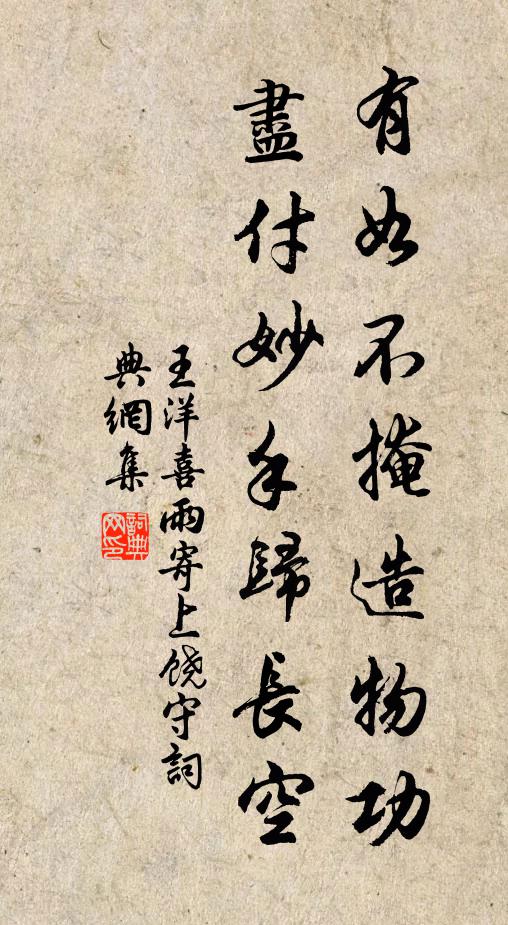 有如不掩造物功
盡付妙手歸長空
王洋喜雨寄上饶守詞
典網集
詞典网印